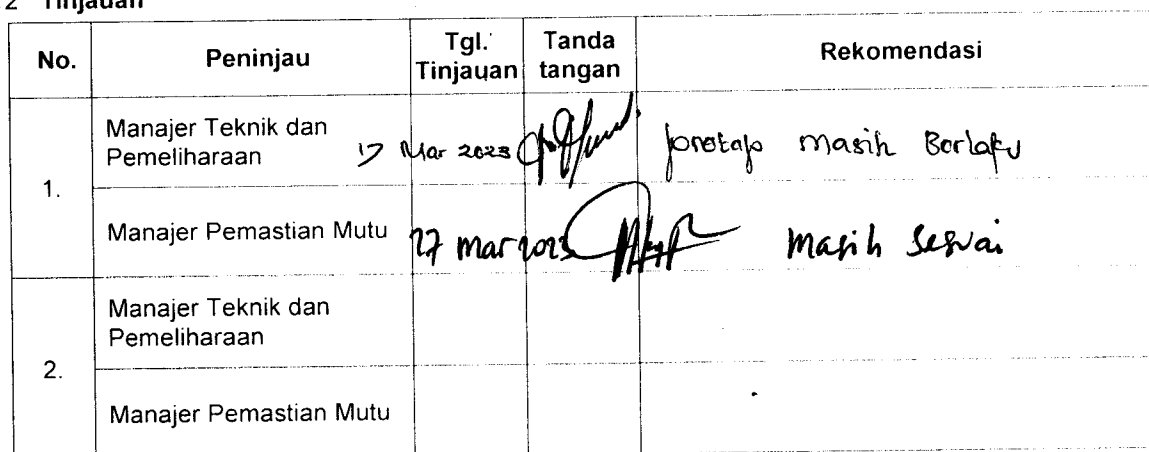 2 Tinjauan
No. Peninjau Tgl. Tinjauan Tanda tangan Rekomendasi
1.
Manajer Teknik dan
Pemeliharaan 17 Mar 2023 protap masih Berlaku
Manajer Pemastian Mutu 27 mar 2023 masih sesuai
2.
Manajer Teknik dan
Pemeliharaan
Manajer Pemastian Mutu